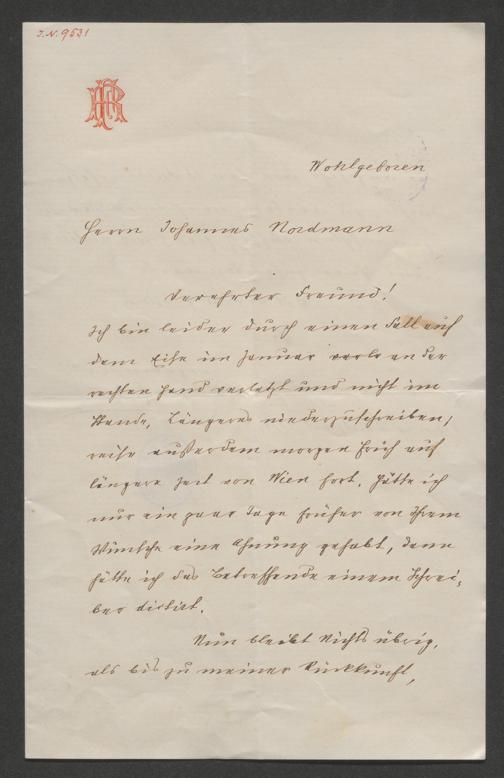 I.N. 9531
Wohlgeboren
Herrn Johannes Nordmann
Verehrter Freund!
Ich bin leider durch einen Fall auf
dem Eise im Januar verle an der
rechten Hand verletzt und nicht im
Stande, Längeres niederzuschreiben,
reise außerdem morgen früh auf
längere Zeit von Wien fort. Hätte ich
nur ein paar Tage früher von Ihrem
Wunsche eine Ahnung gehabt, dann
hätte ich das Betreffende einem Schrei-
ber dictirt.
Nun bleibt Nichts übrig,
als bis zu meiner Rückkunft,